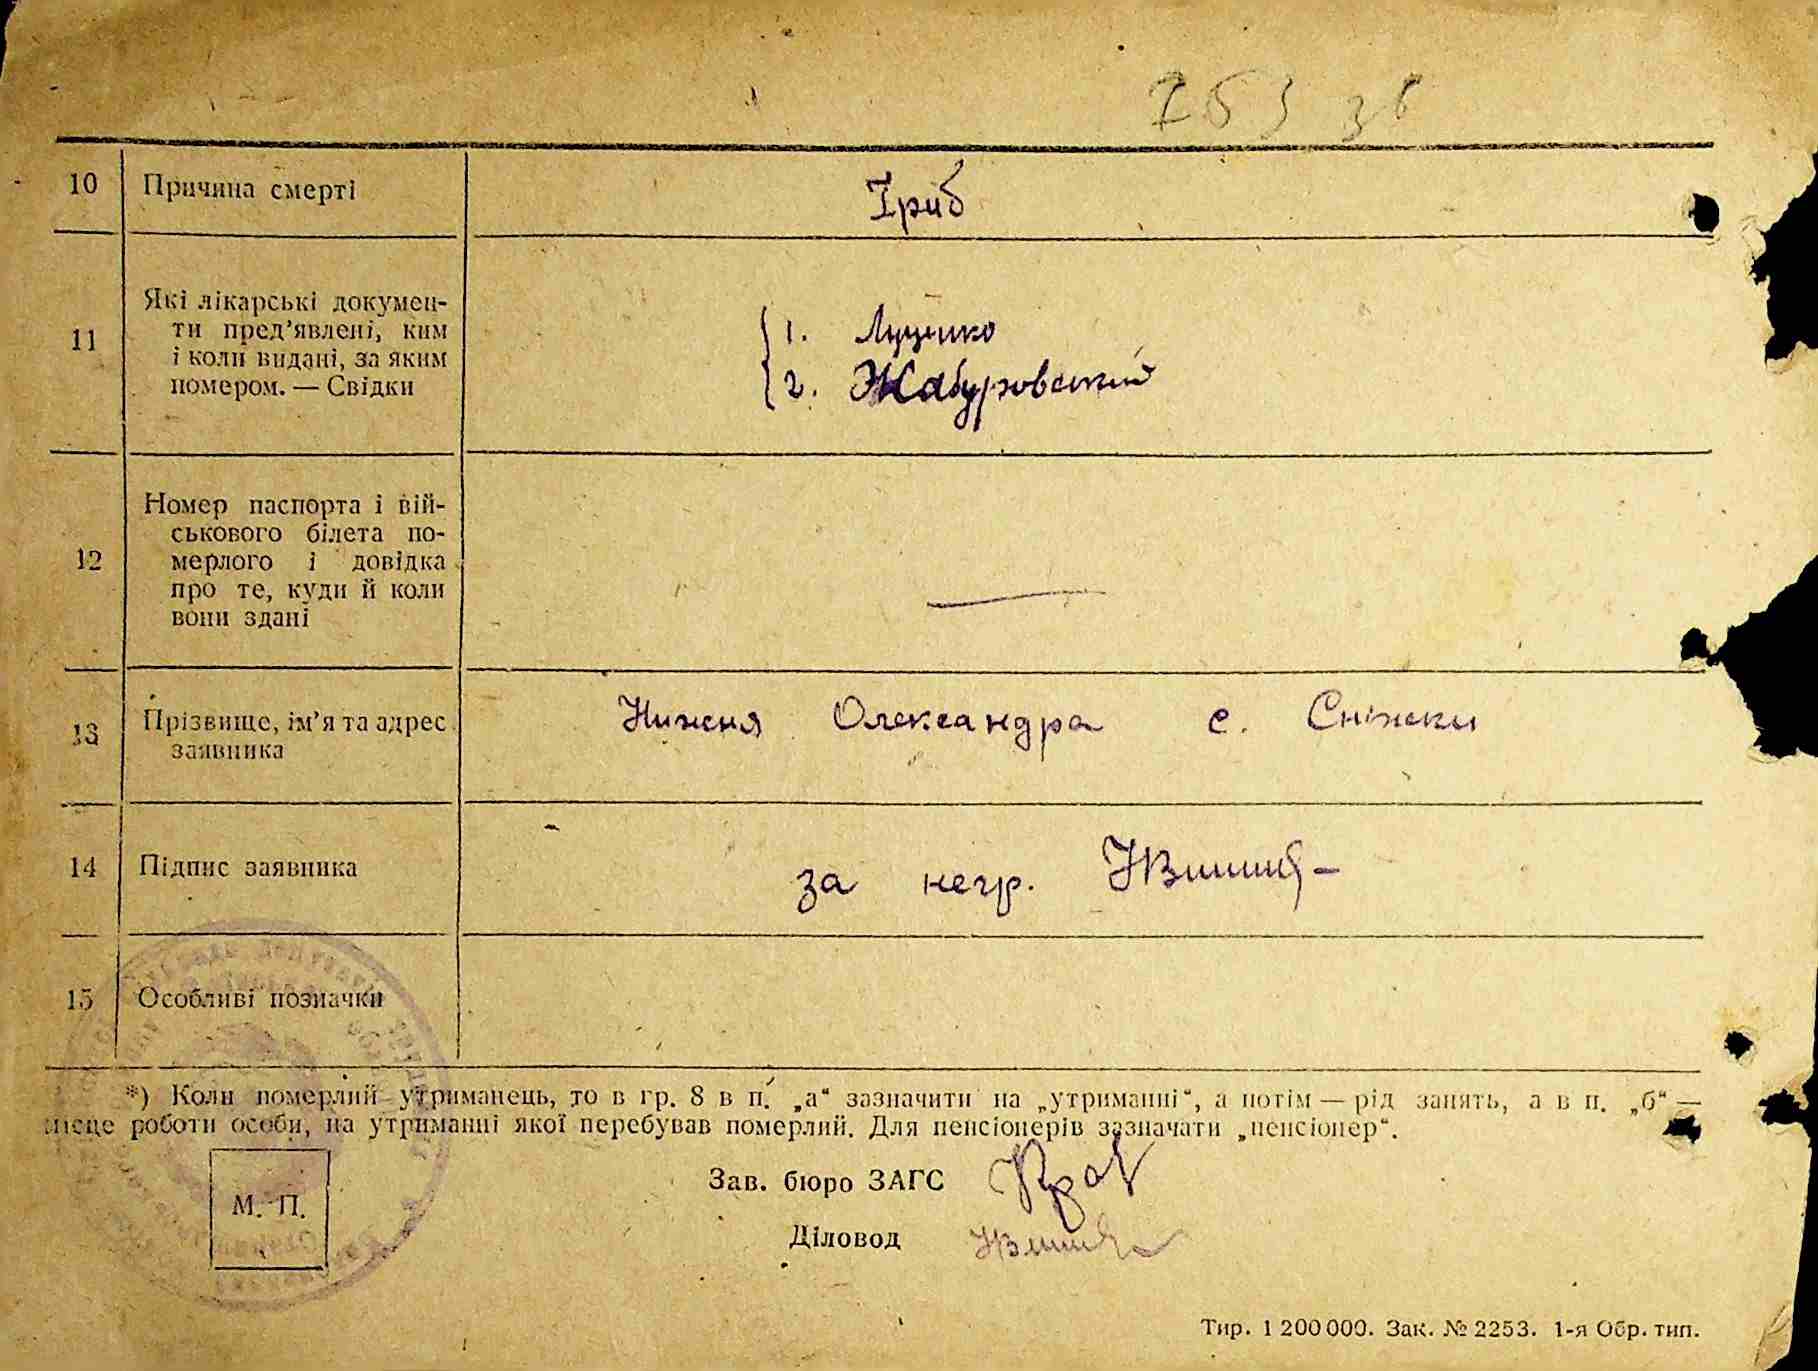 253 зв
10 Причина смерті Гриб
11 Які лікарські докумен-
ти пред'явлені, ким
і коли видані, за яким
номером. — Свідки
1. Луценко
2. Жабуровський
12 Номер паспорта і вій-
ськового білета по-
мерлого і довідка
про те, куди й коли
вони здані —
13 Прізвище, ім'я та адрес
заявника
Нижня Олександра с. Сніжки
14 Підпис заявника за негр.
15 Особливі позначки
*) Коли померлий утриманець, то в гр. 8 в п. „а“ зазначити на „утриманні“, а потім — рід занять, а в п. „б“ —
місце роботи особи, на утриманні якої перебував померлий. Для пенсіонерів зазначати „пенсіонер“.
М. П.
Зав. бюро ЗАГС
Діловод
Тир. 1 200 000. Зак. № 2253. 1-я Обр. тип.